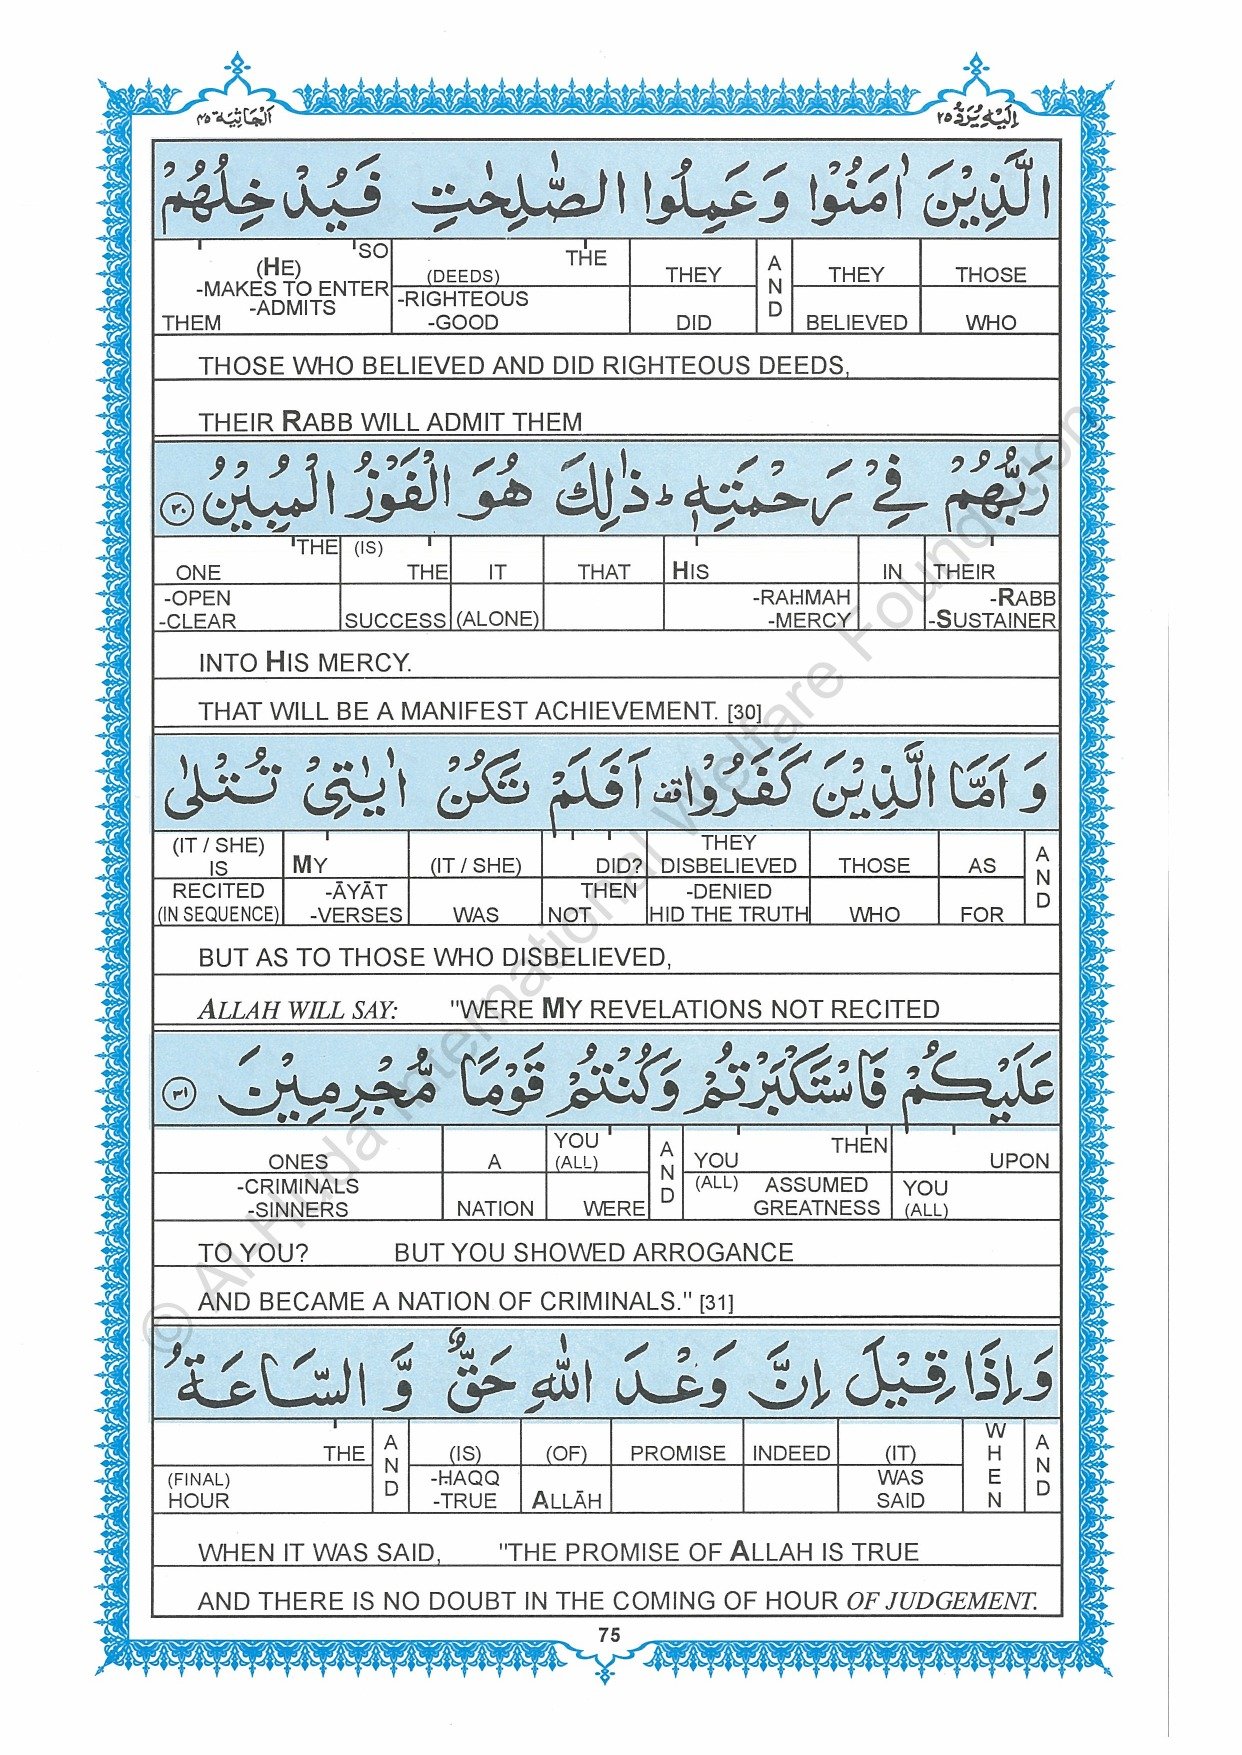 اِلَيْهِ يُرَدُّ ٢٥
اَلْجَاثِيَة ٤٥
الَّذِيْنَ اٰمَنُوْا وَعَمِلُوا الصّٰلِحٰتِ فَيُدْخِلُهُمْ
THOSE WHO
THEY BELIEVED
AND
THEY DID
THE (DEEDS) -RIGHTEOUS -GOOD
SO (HE) -MAKES TO ENTER -ADMITS THEM
THOSE WHO BELIEVED AND DID RIGHTEOUS DEEDS,
THEIR RABB WILL ADMIT THEM
رَبُّهُمْ فِيْ رَحْمَتِهٖ ط ذٰلِكَ هُوَ الْفَوْزُ الْمُبِيْنُ ٣٠
THEIR -RABB -SUSTAINER
IN
HIS -RAḤMAH -MERCY
THAT
IT (ALONE)
(IS) THE SUCCESS
THE ONE -OPEN -CLEAR
INTO HIS MERCY.
THAT WILL BE A MANIFEST ACHIEVEMENT. [30]
وَ اَمَّا الَّذِيْنَ كَفَرُوْا قف اَفَلَمْ تَكُنْ اٰيٰتِيْ تُتْلٰى
AND
AS FOR
THOSE WHO
THEY DISBELIEVED -DENIED HID THE TRUTH
DID? THEN NOT
(IT / SHE) WAS
MY -ĀYĀT -VERSES
(IT / SHE) IS RECITED (IN SEQUENCE)
BUT AS TO THOSE WHO DISBELIEVED,
ALLAH WILL SAY: "WERE MY REVELATIONS NOT RECITED
عَلَيْكُمْ فَاسْتَكْبَرْتُمْ وَكُنْتُمْ قَوْمًا مُّجْرِمِيْنَ ٣١
UPON YOU (ALL)
THEN YOU (ALL) ASSUMED GREATNESS
AND
YOU (ALL) WERE
A NATION
ONES -CRIMINALS -SINNERS
TO YOU? BUT YOU SHOWED ARROGANCE
AND BECAME A NATION OF CRIMINALS." [31]
وَاِذَا قِيْلَ اِنَّ وَعْدَ اللّٰهِ حَقٌّ وَّ السَّاعَةُ
AND
WHEN
(IT) WAS SAID
INDEED
PROMISE
(OF) ALLĀH
(IS) -ḤAQQ -TRUE
AND
THE (FINAL) HOUR
WHEN IT WAS SAID, "THE PROMISE OF ALLAH IS TRUE
AND THERE IS NO DOUBT IN THE COMING OF HOUR OF JUDGEMENT.
75
© Al-Huda International Welfare Foundation